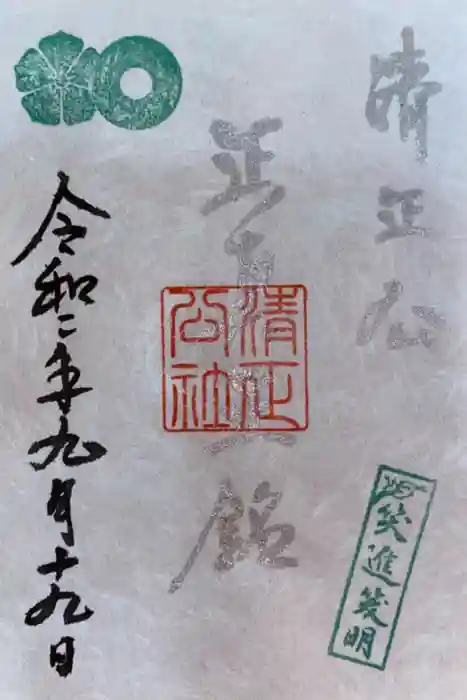 清正公
正真正銘
清正公社
令和二年九月十九日
笑進笑明